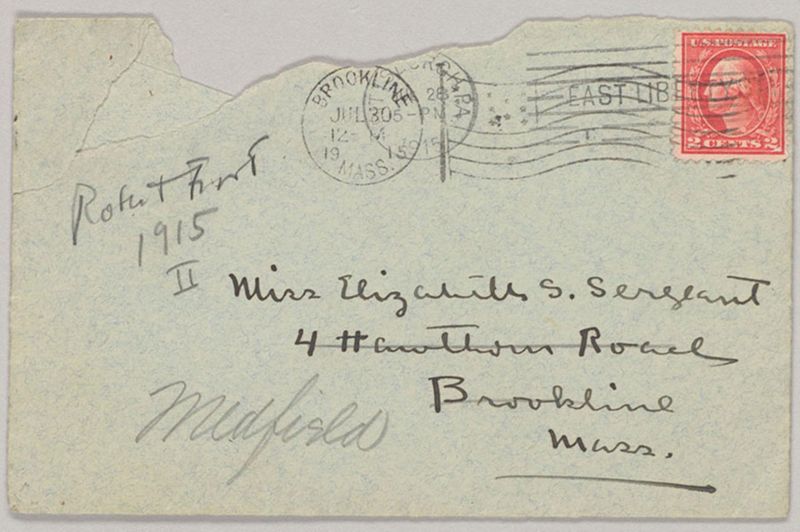 BROOKLINE
JUL 30
12-M
1915
MASS.
28
5-PM
1915
PA
EAST LIBERTY
U.S. POSTAGE
2 CENTS 2
Robert Frost
1915
II
Miss Elizabeth S. Sergeant
4 Hawthorn Road
Brookline
Mass.
Medfield